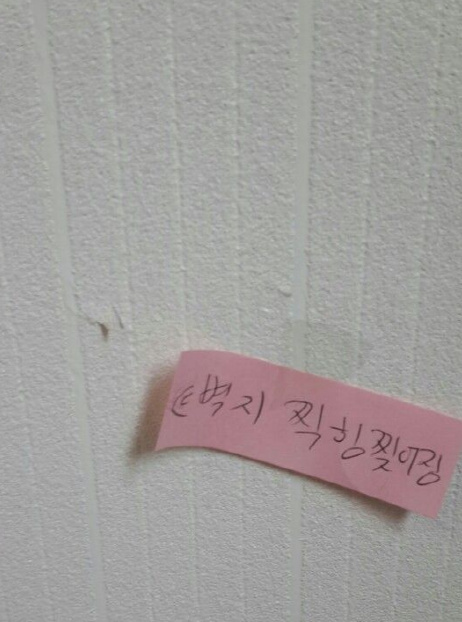 ⇐벽지 찍힘 찢어짐